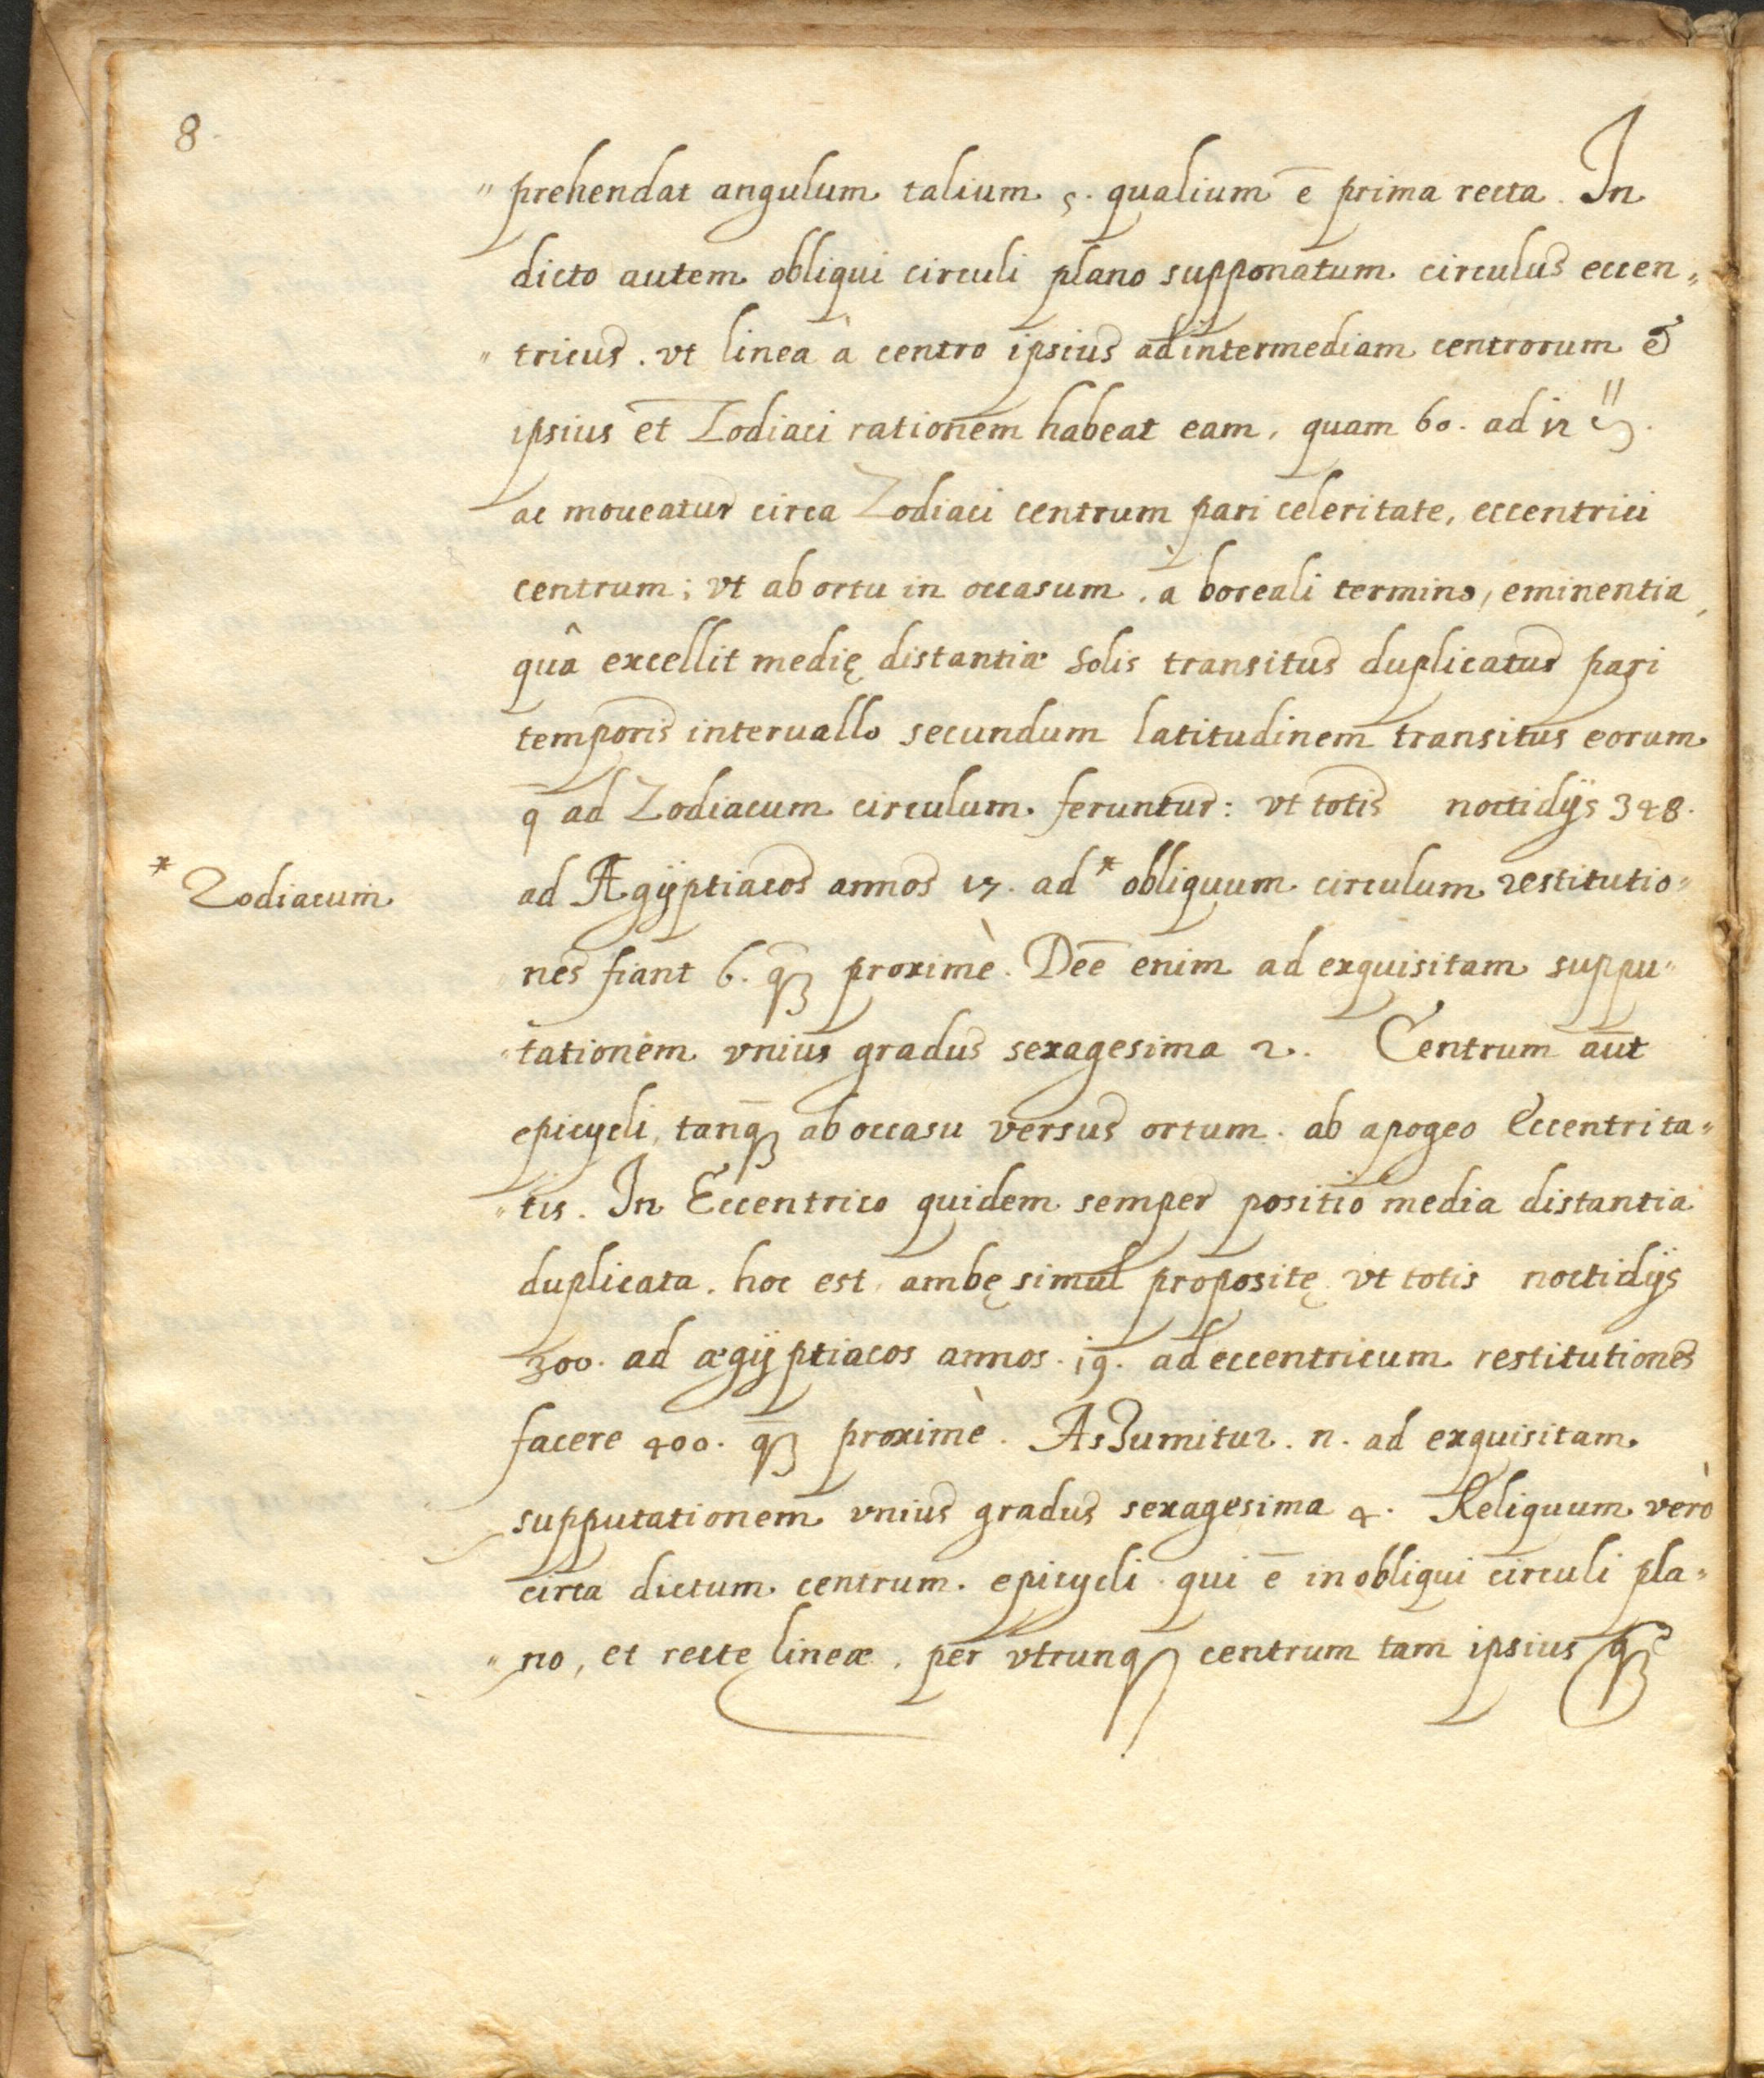 8.
" prehendat angulum talium 5. qualium ē prima recta. In
dicto autem obliqui circuli plano supponatum circulus eccen„
" tricus. vt linea à centro ipsius ad intermediam centrorum &
ipsius et Zodiaci rationem habeat eam, quam 60. ad 12
ac moueatur circa Zodiaci centrum pari celeritate, eccentrici
centrum; vt ab ortu in occasum. à boreali termino, eminentia
quâ excellit medię distantiæ Solis transitus duplicatus pari
temporis interuallo secundum latitudinem transitus eorum
q̄ ad Zodiacum circulum feruntur: vt totis noctidijs 348.
* Zodiacum
ad Ægÿptiacos annos 17. ad * obliquum circulum restitutio„
nes fiant 6. qꝫ proximè. Deē enim ad exquisitam suppu„
"tationem vnius gradus sexagesima 2. Centrum aūt
epicycli, tanqꝫ ab occasu versus ortum. ab apogeo Eccentrita„
"tis. In Eccentrico quidem semper positio media distantia
duplicata. hoc est, ambę simul propositę vt totis noctidijs
300. ad ægÿptiacos annos. 19. ad eccentricum restitutiones
facere 400. qꝫ proximè. Assumitur. n. ad exquisitam
supputationem vnius gradus sexagesima 4. Reliquum verò
circa dictum centrum. epicycli. qui ē in obliqui circuli pla„
" no, et recte lineæ. per vtrunqꝫ centrum tam ipsius qꝫ